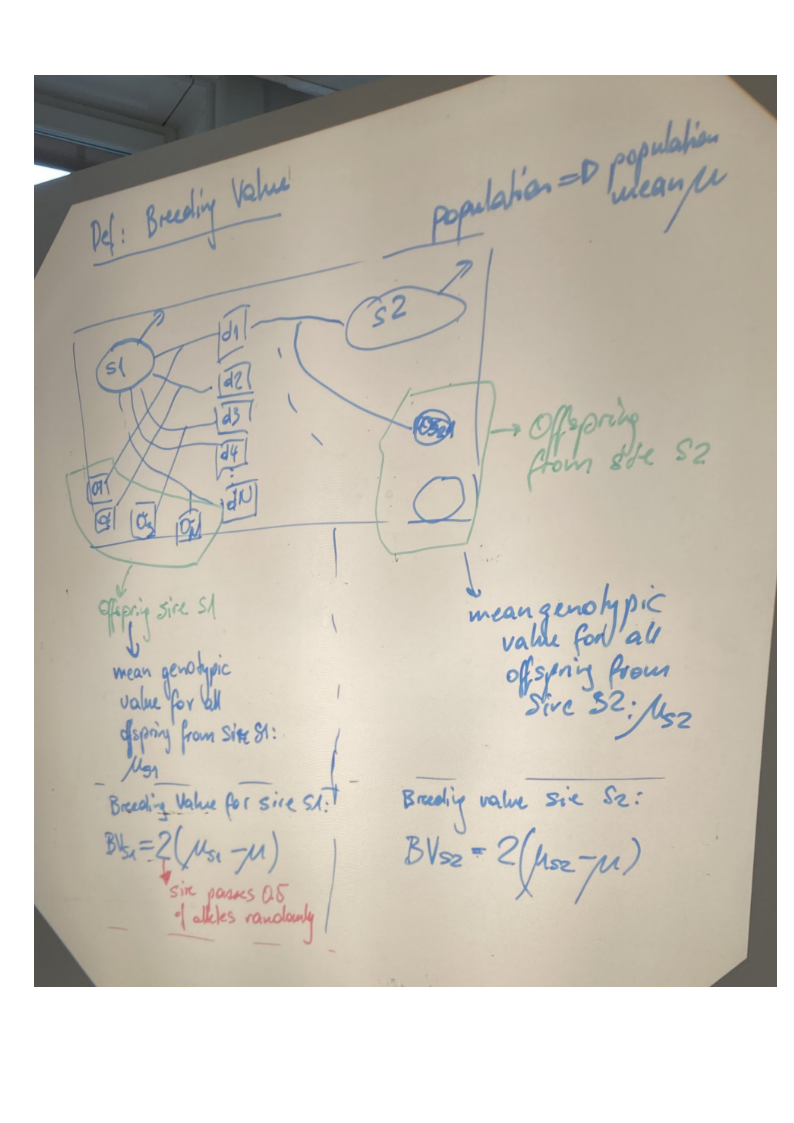 Def: Breeding Value
population => population
mean μ
S1
d1
d2
d3
d4
dN
S2
O1
O3
ON
Offspring
from sire S2
Offspring sire S1
mean genotypic
value for all
offspring from sire S1:
μS1
mean genotypic
value for all
offspring from
sire S2: μS2
Breeding Value for sire S1:
BVS1 = 2(μS1 - μ)
sire passes 0.5
of alleles randomly
Breeding value sie S2:
BVS2 = 2(μS2 - μ)